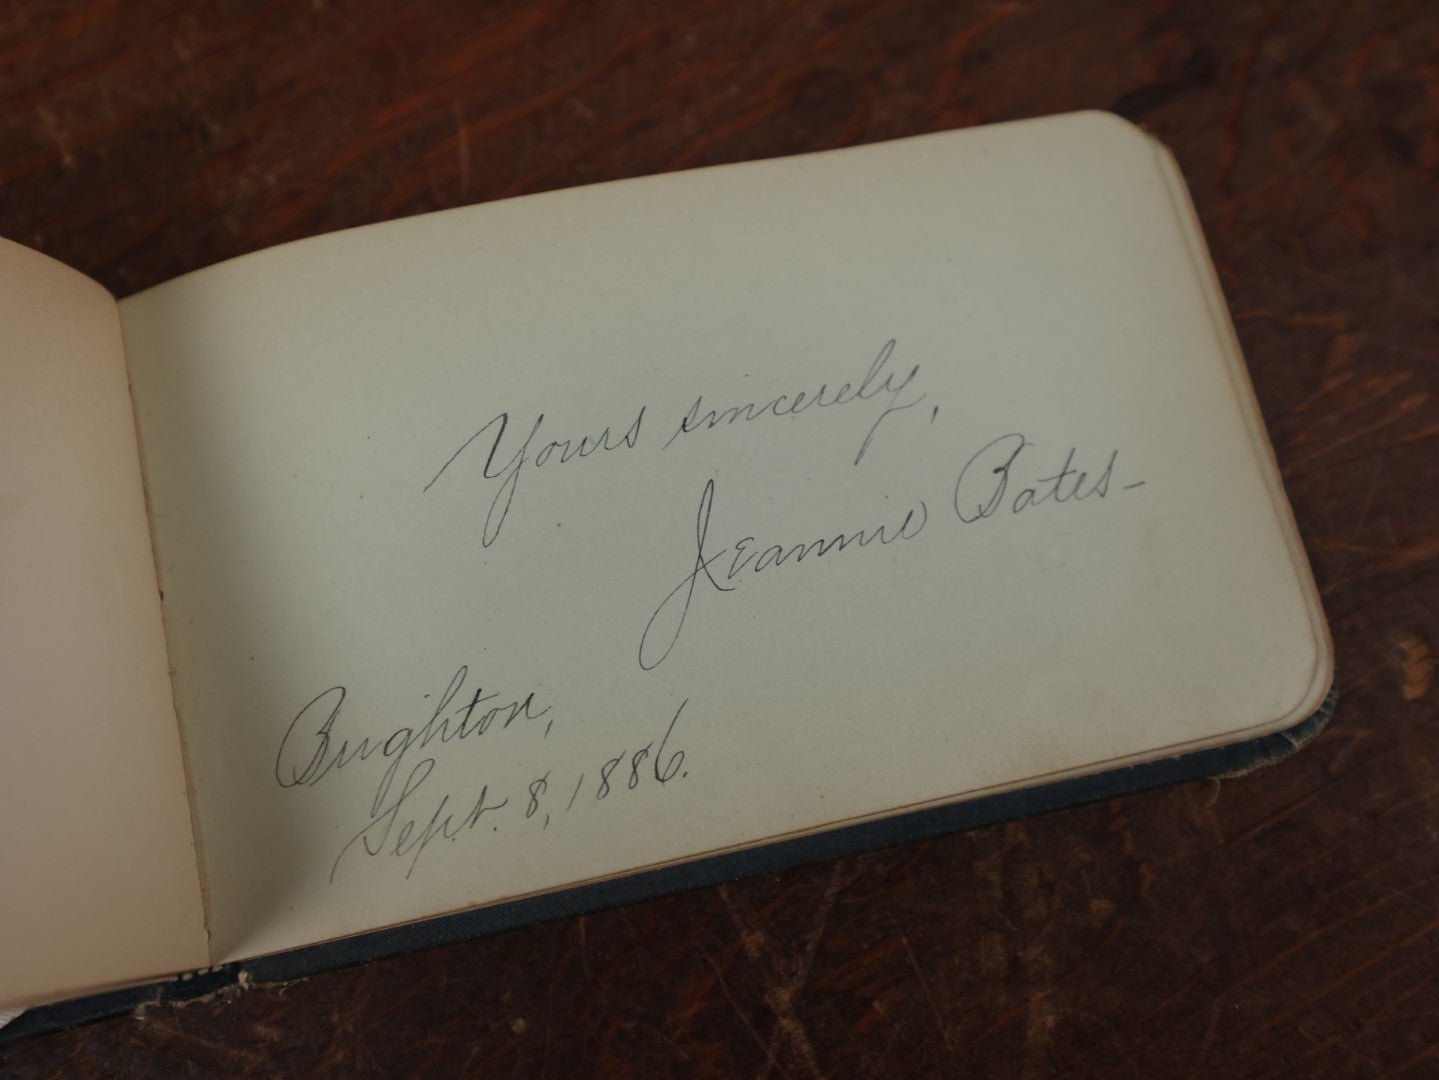 Yours sincerely,
Jeannie Bates-
Brighton,
Sept. 8, 1886.